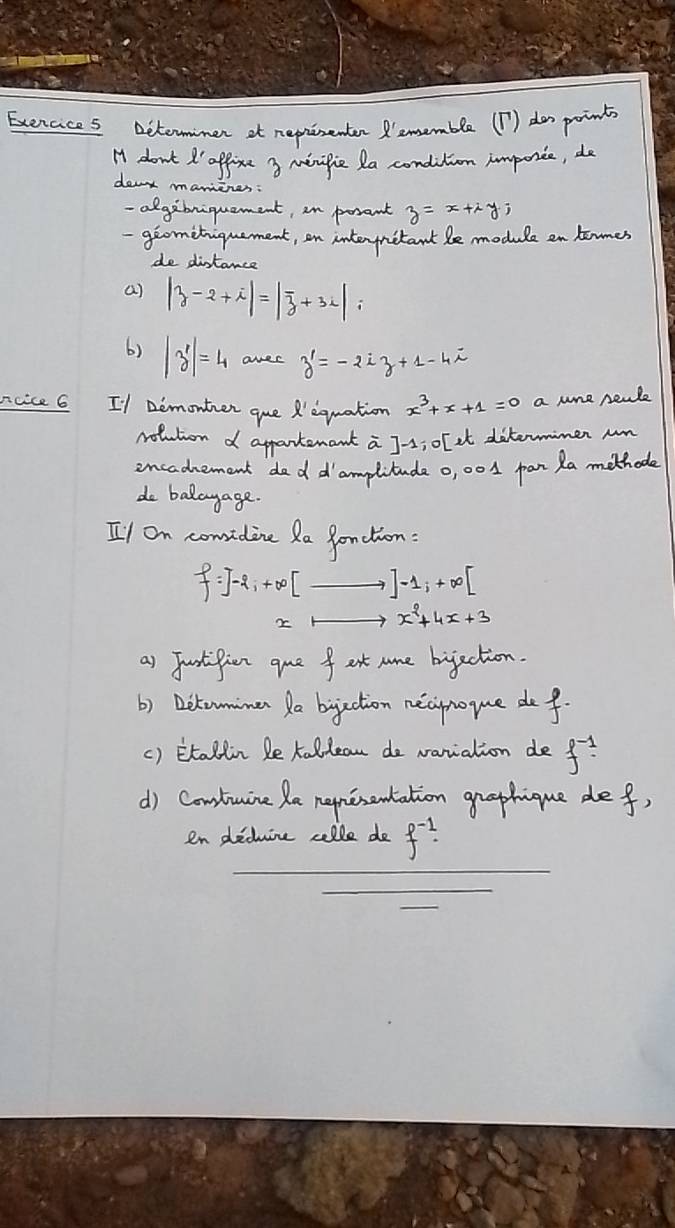 Exercice 5 Déterminer et représenter l'ensemble (Γ) des points
M dont l'affixe z vérifie la condition imposée, de
deux manières:
- algébriquement, en posant z = x+iy;
- géométriquement, en interprétant le module en termes
de distance
a) |z-2+i| = |z̄+3i| ;
b) |z'| = 4 avec z' = -2iz+1-4i
rcice 6 I:/ Démontrer que l'équation x³+x+1=0 a une seule
solution α appartenant à ]-1;0[ et déterminer un
encadrement de α d'amplitude 0,001 par la méthode
de balayage.
II:/ On considère la fonction:
f:]-2;+∞[ ⟶ ]-1;+∞[
x ⟼ x²+4x+3
a) Justifier que f est une bijection.
b) Déterminer la bijection réciproque de f.
c) Établir le tableau de variation de f⁻¹.
d) Construire la représentation graphique de f,
en déduire celle de f⁻¹.